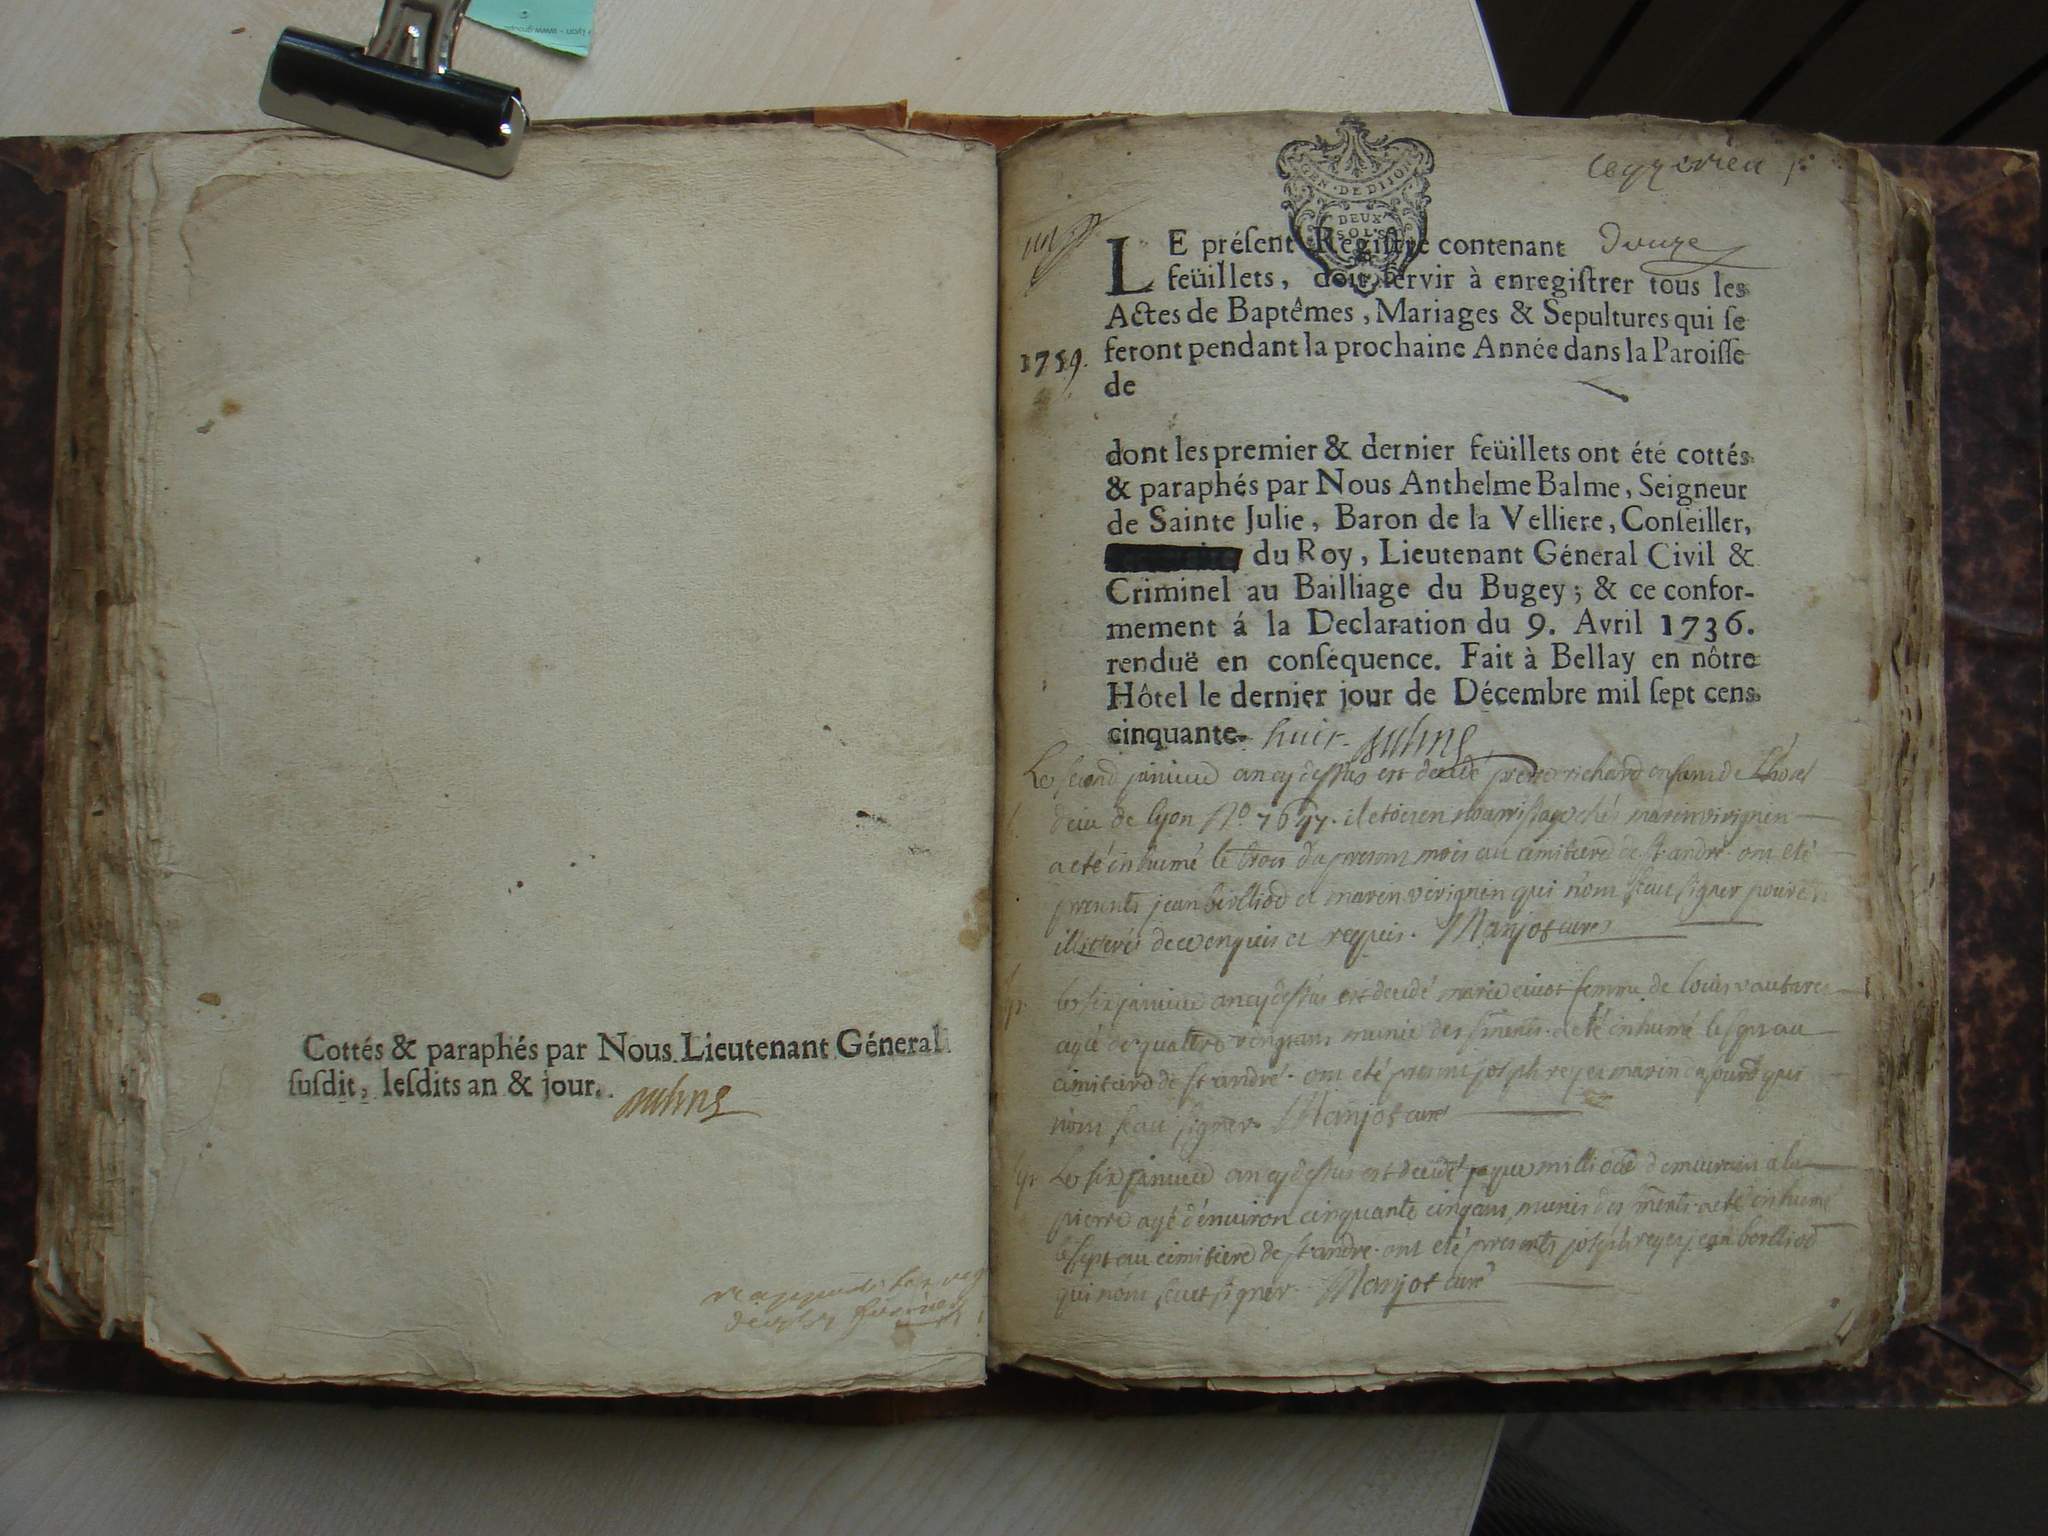 Cottés & paraphés par Nous Lieutenant Géneral
ſuſdit, leſdits an & jour.
GEN · DE DIJON
DEUX
SOLS
Ceyzerieu
LE préſent Regiſtre contenant Douze
feüillets, doit ſervir à enregiſtrer tous les
Actes de Baptêmes, Mariages & Sepultures qui ſe
1759. feront pendant la prochaine Année dans la Paroiſſe
de
dont les premier & dernier feüillets ont été cottés
& paraphés par Nous Anthelme Balme, Seigneur
de Sainte Julie, Baron de la Velliere, Conſeiller,
du Roy, Lieutenant Géneral Civil &
Criminel au Bailliage du Bugey; & ce confor-
mement á la Declaration du 9. Avril 1736.
renduë en conſéquence. Fait à Bellay en nôtre
Hôtel le dernier jour de Décembre mil ſept cens
cinquante huit.
Le second janvier an cy dessus est decedé pierre richard enfant de l'hotel
dieu de lyon No il etoit en chés
a eté inhumé le trois du present mois au cimitiere de st andré ont eté
presents jean berlliod et qui n'ont sceu signer pour etre
illiterés de ce enquis et requis. Manjot curé
le six janvier an cy dessus est decedé marie femme de louis
agée de quatre vingt ans munie des a eté inhumé le sept au
cimitiere de st andré ont eté present joseph reyes marin qui
n'ont sceu signer. Manjot curé
Le six janvier an cy dessus est decedé milliod demeurant a la
pierre agé d'environ cinquante cinq ans, munis des a eté inhumé
le sept au cimitiere de st andre ont eté presents joseph reyes jean berlliod
qui n'ont sceut signer. Manjot curé